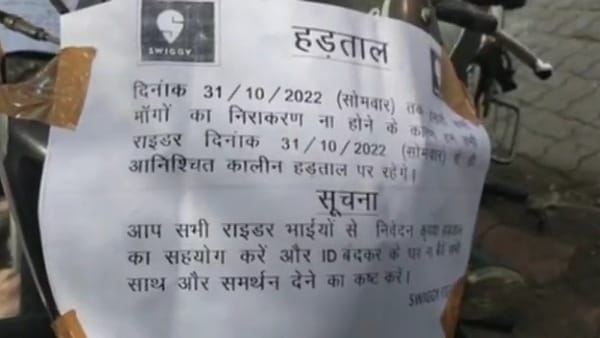 SWIGGY
हड़ताल
दिनांक 31/10/2022 (सोमवार) तक
माँगों का निराकरण ना होने के कारण हम सभी
राइडर दिनांक 31/10/2022 (सोमवार) से ही
आनिश्चित कालीन हड़ताल पर रहेगे।
सूचना
आप सभी राइडर भाईयों से निवेदन कृपया हड़ताल
का सहयोग करें और ID बंदकर के घर न बैठें सभी
साथ और समर्थन देने का कष्ट करें।
SWIGGY